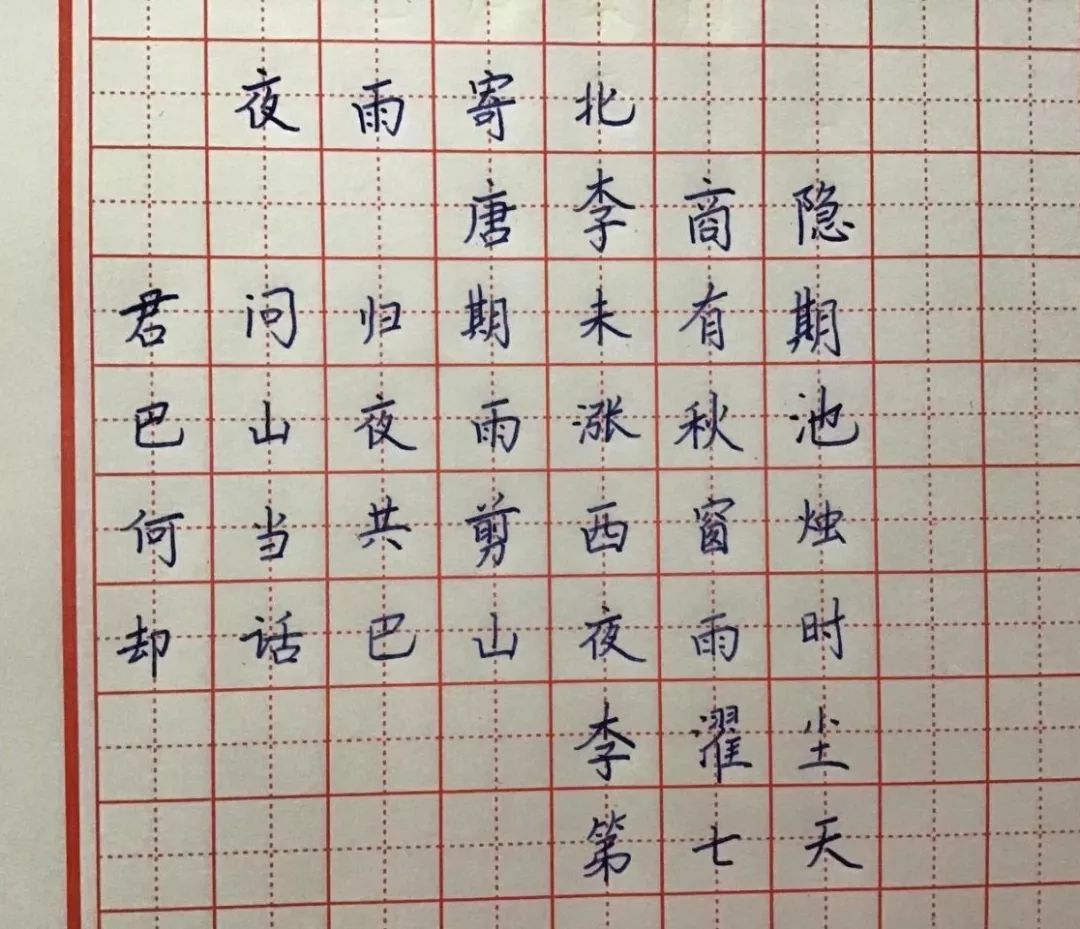 夜雨寄北
唐李商隐
君问归期未有期
巴山夜雨涨秋池
何当共剪西窗烛
却话巴山夜雨时
李濯尘
第七天